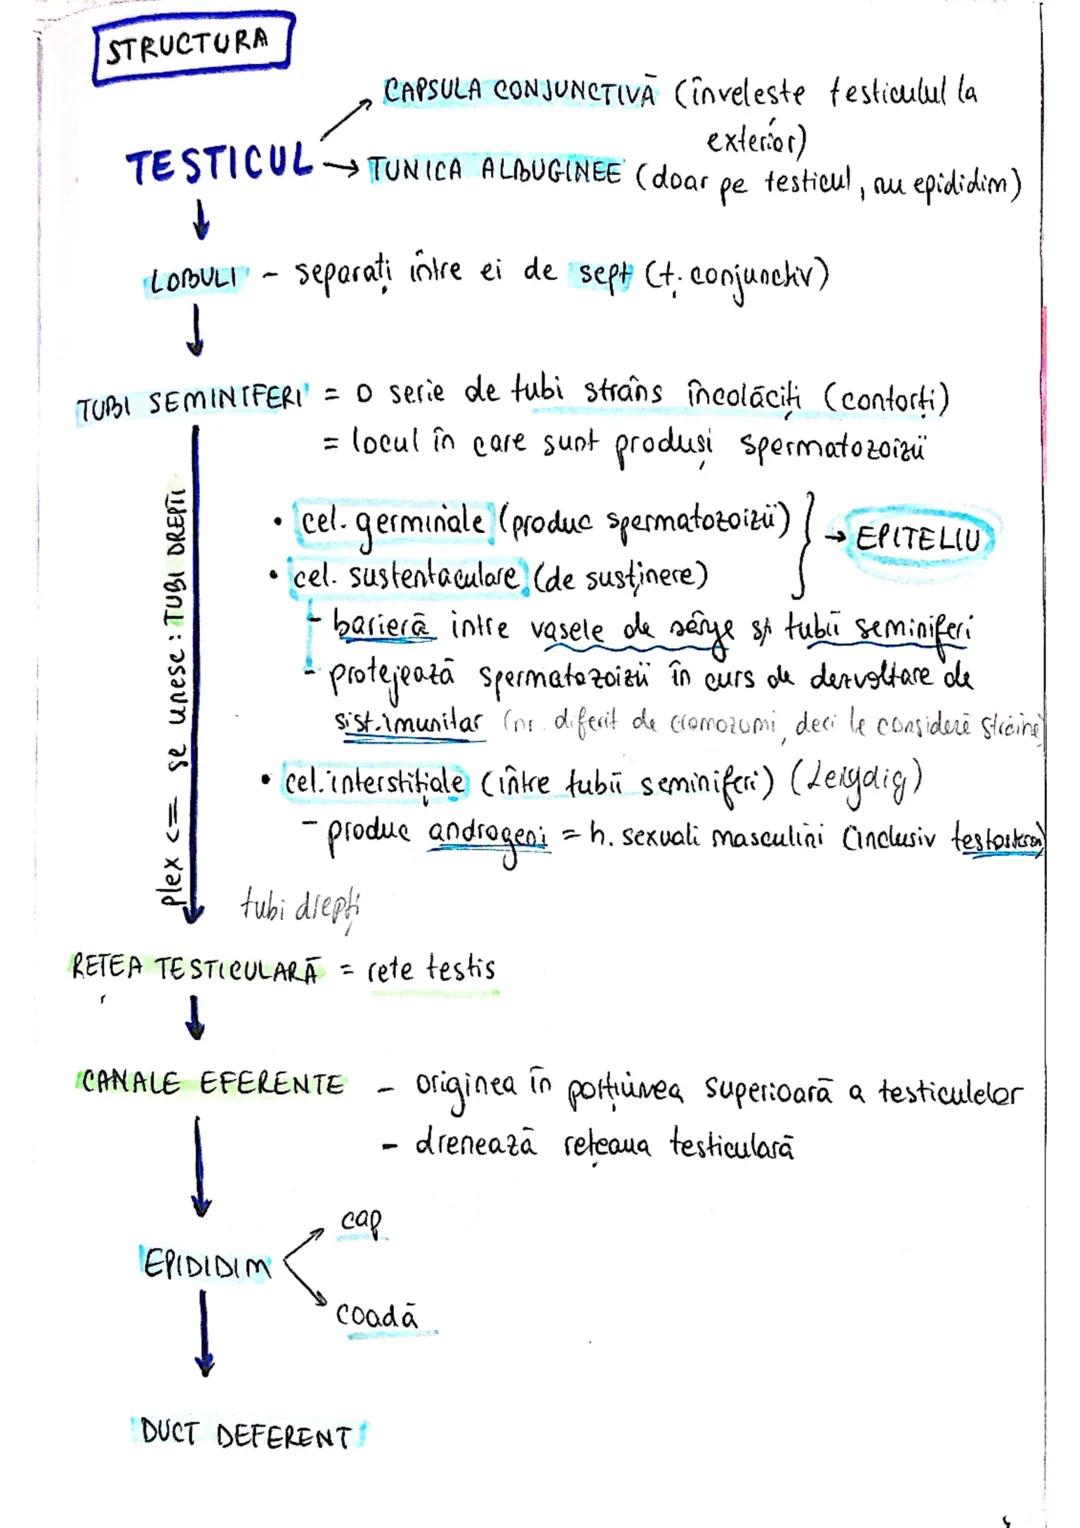 STRUCTURA
CAPSULA CONJUNCTIVĂ (învelește testiculul la
exterior)
TESTICUL → TUNICA ALBUGINEE (doar pe testicul, nu epididim)
LOBULI - separați între ei de sept (t. conjunctiv)
TUBI SEMINIFERI = o serie de tubi strâns încolăciți (contorți)
= locul în care sunt produși spermatozoizii
• cel. germinale (produc spermatozoizii)
→ EPITELIU
• cel. sustentaculare (de susținere)
- barieră intre vasele de sânge și tubii seminiferi
- protejează spermatozoizii în curs de dezvoltare de
sist.imunitar (nr. diferit de cromozomi, deci le consideră străine)
• cel. interstițiale (între tubii seminiferi) (Leydig)
- produc androgeni = h. sexuali masculini (inclusiv testosteron)
plex <= se unesc : TUBI DREPȚI
tubi drepți
REȚEA TESTICULARĂ = rete testis
CANALE EFERENTE - originea în porțiunea superioară a testiculelor
- drenează rețeaua testiculară
cap
EPIDIDIM
coadă
DUCT DEFERENT